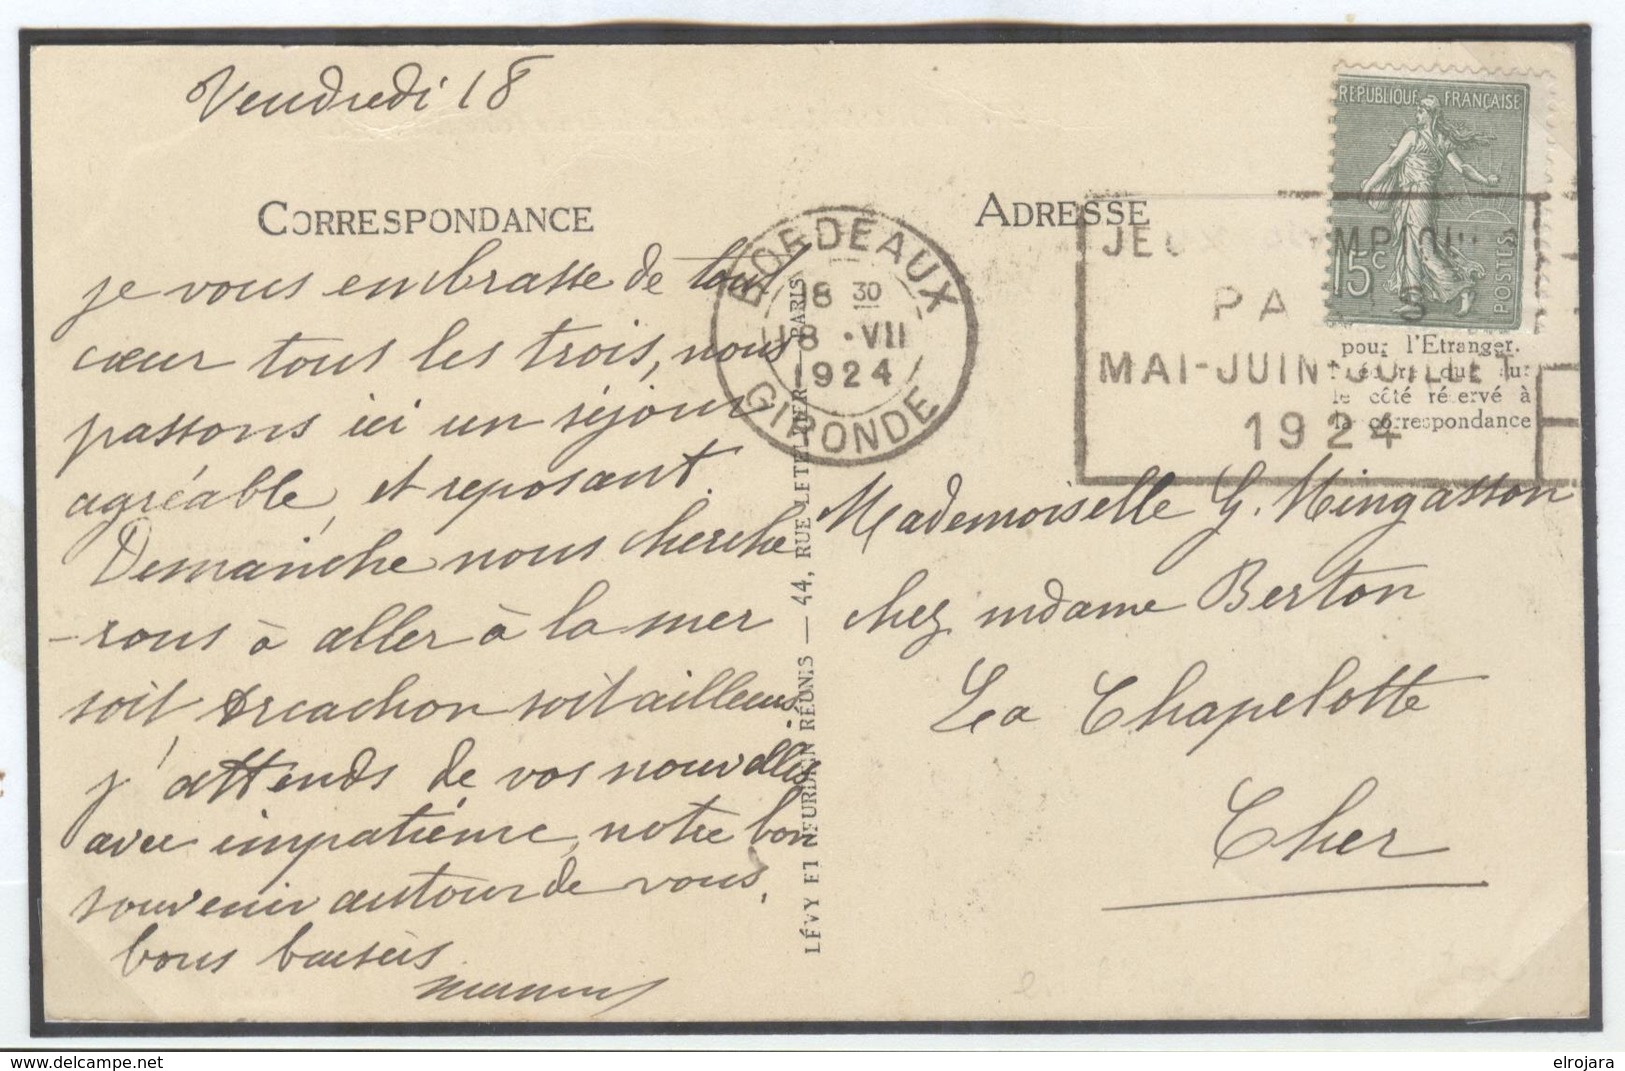 Vendredi 18
CORRESPONDANCE
je vous embrasse de tout
cœur tous les trois, nous
passons ici un séjour
agréable, et reposant.
Demanche nous cherche
-rons à aller à la mer
soit Arcachon soit ailleurs
j'attends de vos nouvelles
avec impatience, notre bon
souvenir autour de vous,
bons baisers
LÉVY ET NEURDEIN RÉUNIS — 44, RUE LETELLIER — PARIS
BORDEAUX
18 30
18 · VII
1924
GIRONDE
ADRESSE
REPUBLIQUE FRANÇAISE
15c
POSTES
PARIS
MAI-JUIN-JUILLET
1924
pour l'Etranger.
le côté réservé à
la correspondance
Mademoiselle G. Mingasson
chez mdame Berton
La Chapelotte
Cher
delcampe.net
elrojara